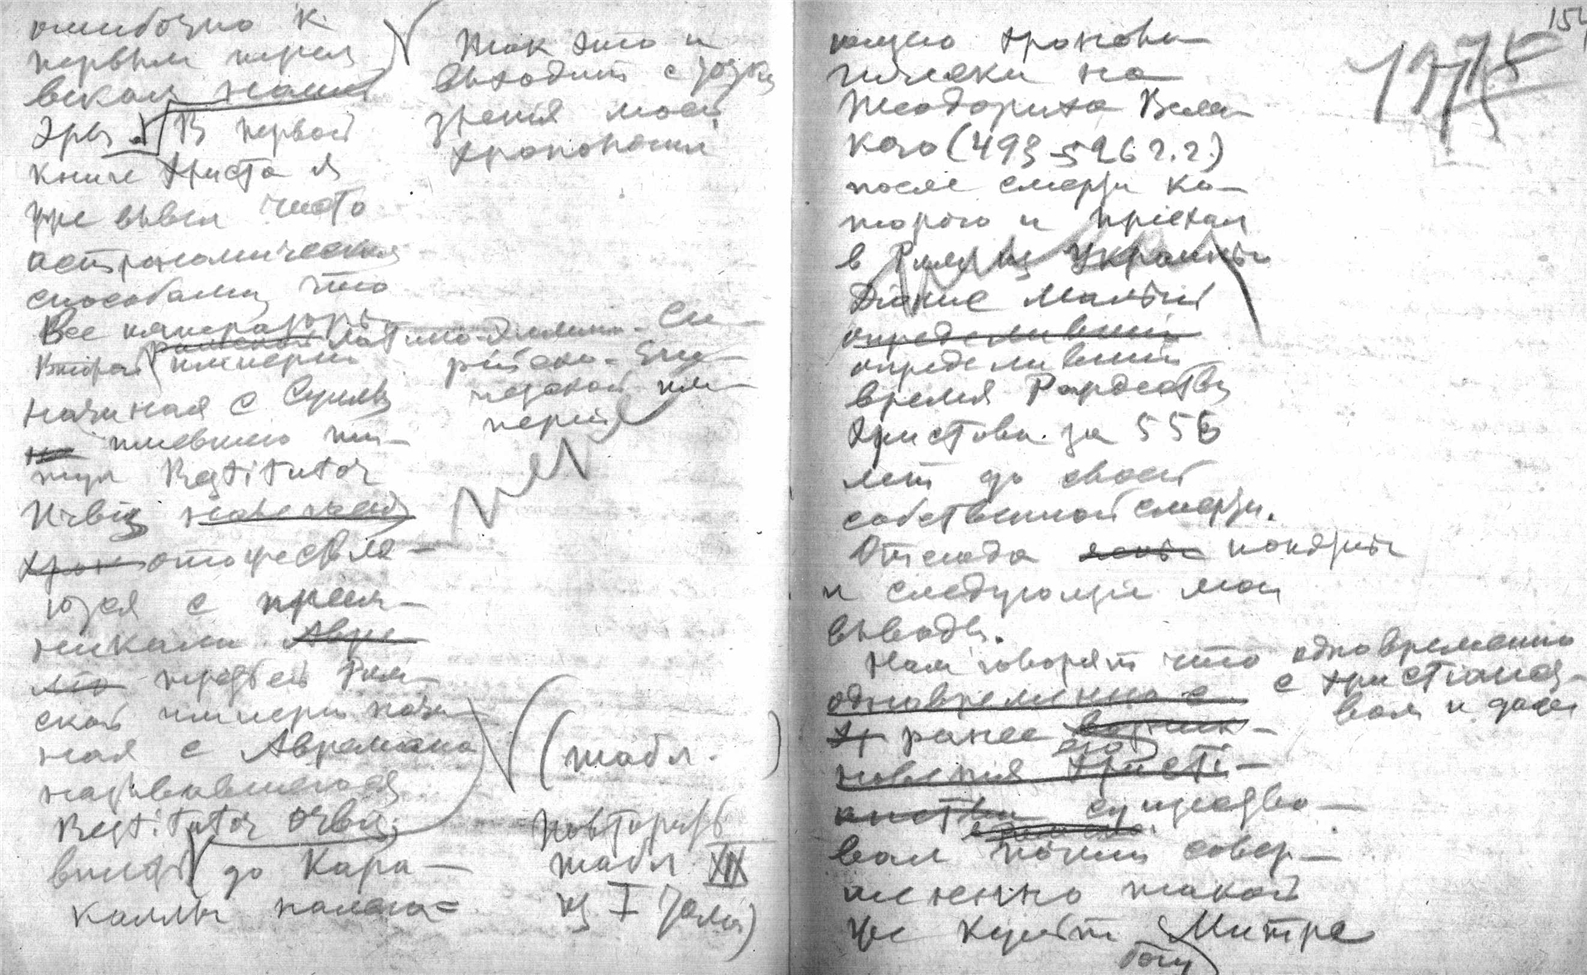 ошибочно к
первым веам
векам нашей
эры. В первой
книге Христа я
уже вывел чисто
астрономическим
способами, что
Все императоры
Второй Латино-Эллино-Си-
рийско-Еги-
петской им-
перии
начиная с Суллы
имевшего ти-
тул Restitutor
Urbis
отожествля-
ются с преем-
никами
третьей Рим-
ской империи начи-
ная с Аврелиана
называвшегося
Restitutor Orbis
вплоть до Кара-
каллы налега=
Так это и
выходит с точки
зрения моей
хронологии
(табл. )
повторить
табл XIX
из I тома)
154
1375
ющего хроноло-
гически на
Теодориха Вели-
кого (493-526 г.г.)
после смерти ко-
торого и приехал
в Рим из Украины
Дионис Малый
определивший
определивший
время Рождества
Христова за 556
лет до своей
собственной смерти.
Отсюда понятны
и следующие мои
выводы.
Нам говорят что одновременно
одновременно с с христианст-
вом и даже
ранее его
новения Христи-
анства существо-
вал почти совер-
шенно такой
же культ Митре
богу